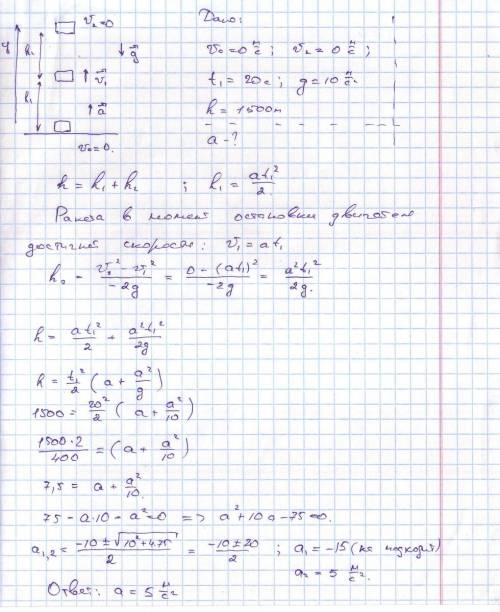 Дано:
v₂=0
y
h₂
↓ g⃗
v₀=0 м/с ; v₂=0 м/с ;
↑ v⃗₁
t₁=20с ; g=10 м/с²
h₁
↑ a⃗
h=1500м
a-?
v₀=0.
h = h₁ + h₂ ; h₁ = at₁²/2.
Ракета в момент остановки двигателя
достигнет скорости: v₁ = at₁
h₂ = (v₂² - v₁²)/(-2g) = (0-(at₁)²)/(-2g) = a²t₁²/2g.
h = at₁²/2 + a²t₁²/2g
h = t₁²/2 (a + a²/g)
1500 = 20²/2 (a + a²/10)
1500·2/400 = (a + a²/10)
7,5 = a + a²/10.
75 - a·10 - a²=0 => a²+10a-75=0.
a₁,₂ = (-10 ± √(10²+4·75))/2 = (-10±20)/2 ; a₁=-15 (не подходит)
a₂ = 5 м/с².
Ответ: a = 5 м/с²